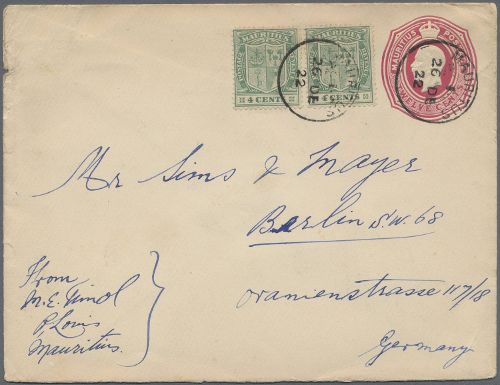 MAURITIUS MAURITIUS
POSTAGE POSTAGE
4 CENTS 4 CENTS
MAURITIUS
26 DE
22
MAURITIUS POSTAGE
TWELVE CENTS
MAURITIUS
26 DE
22
Mr Sims & Mayer
Berlin S.W. 68
Oranienstrasse 117/18
Germany
From
M.E. Timol
P. Louis
Mauritius.